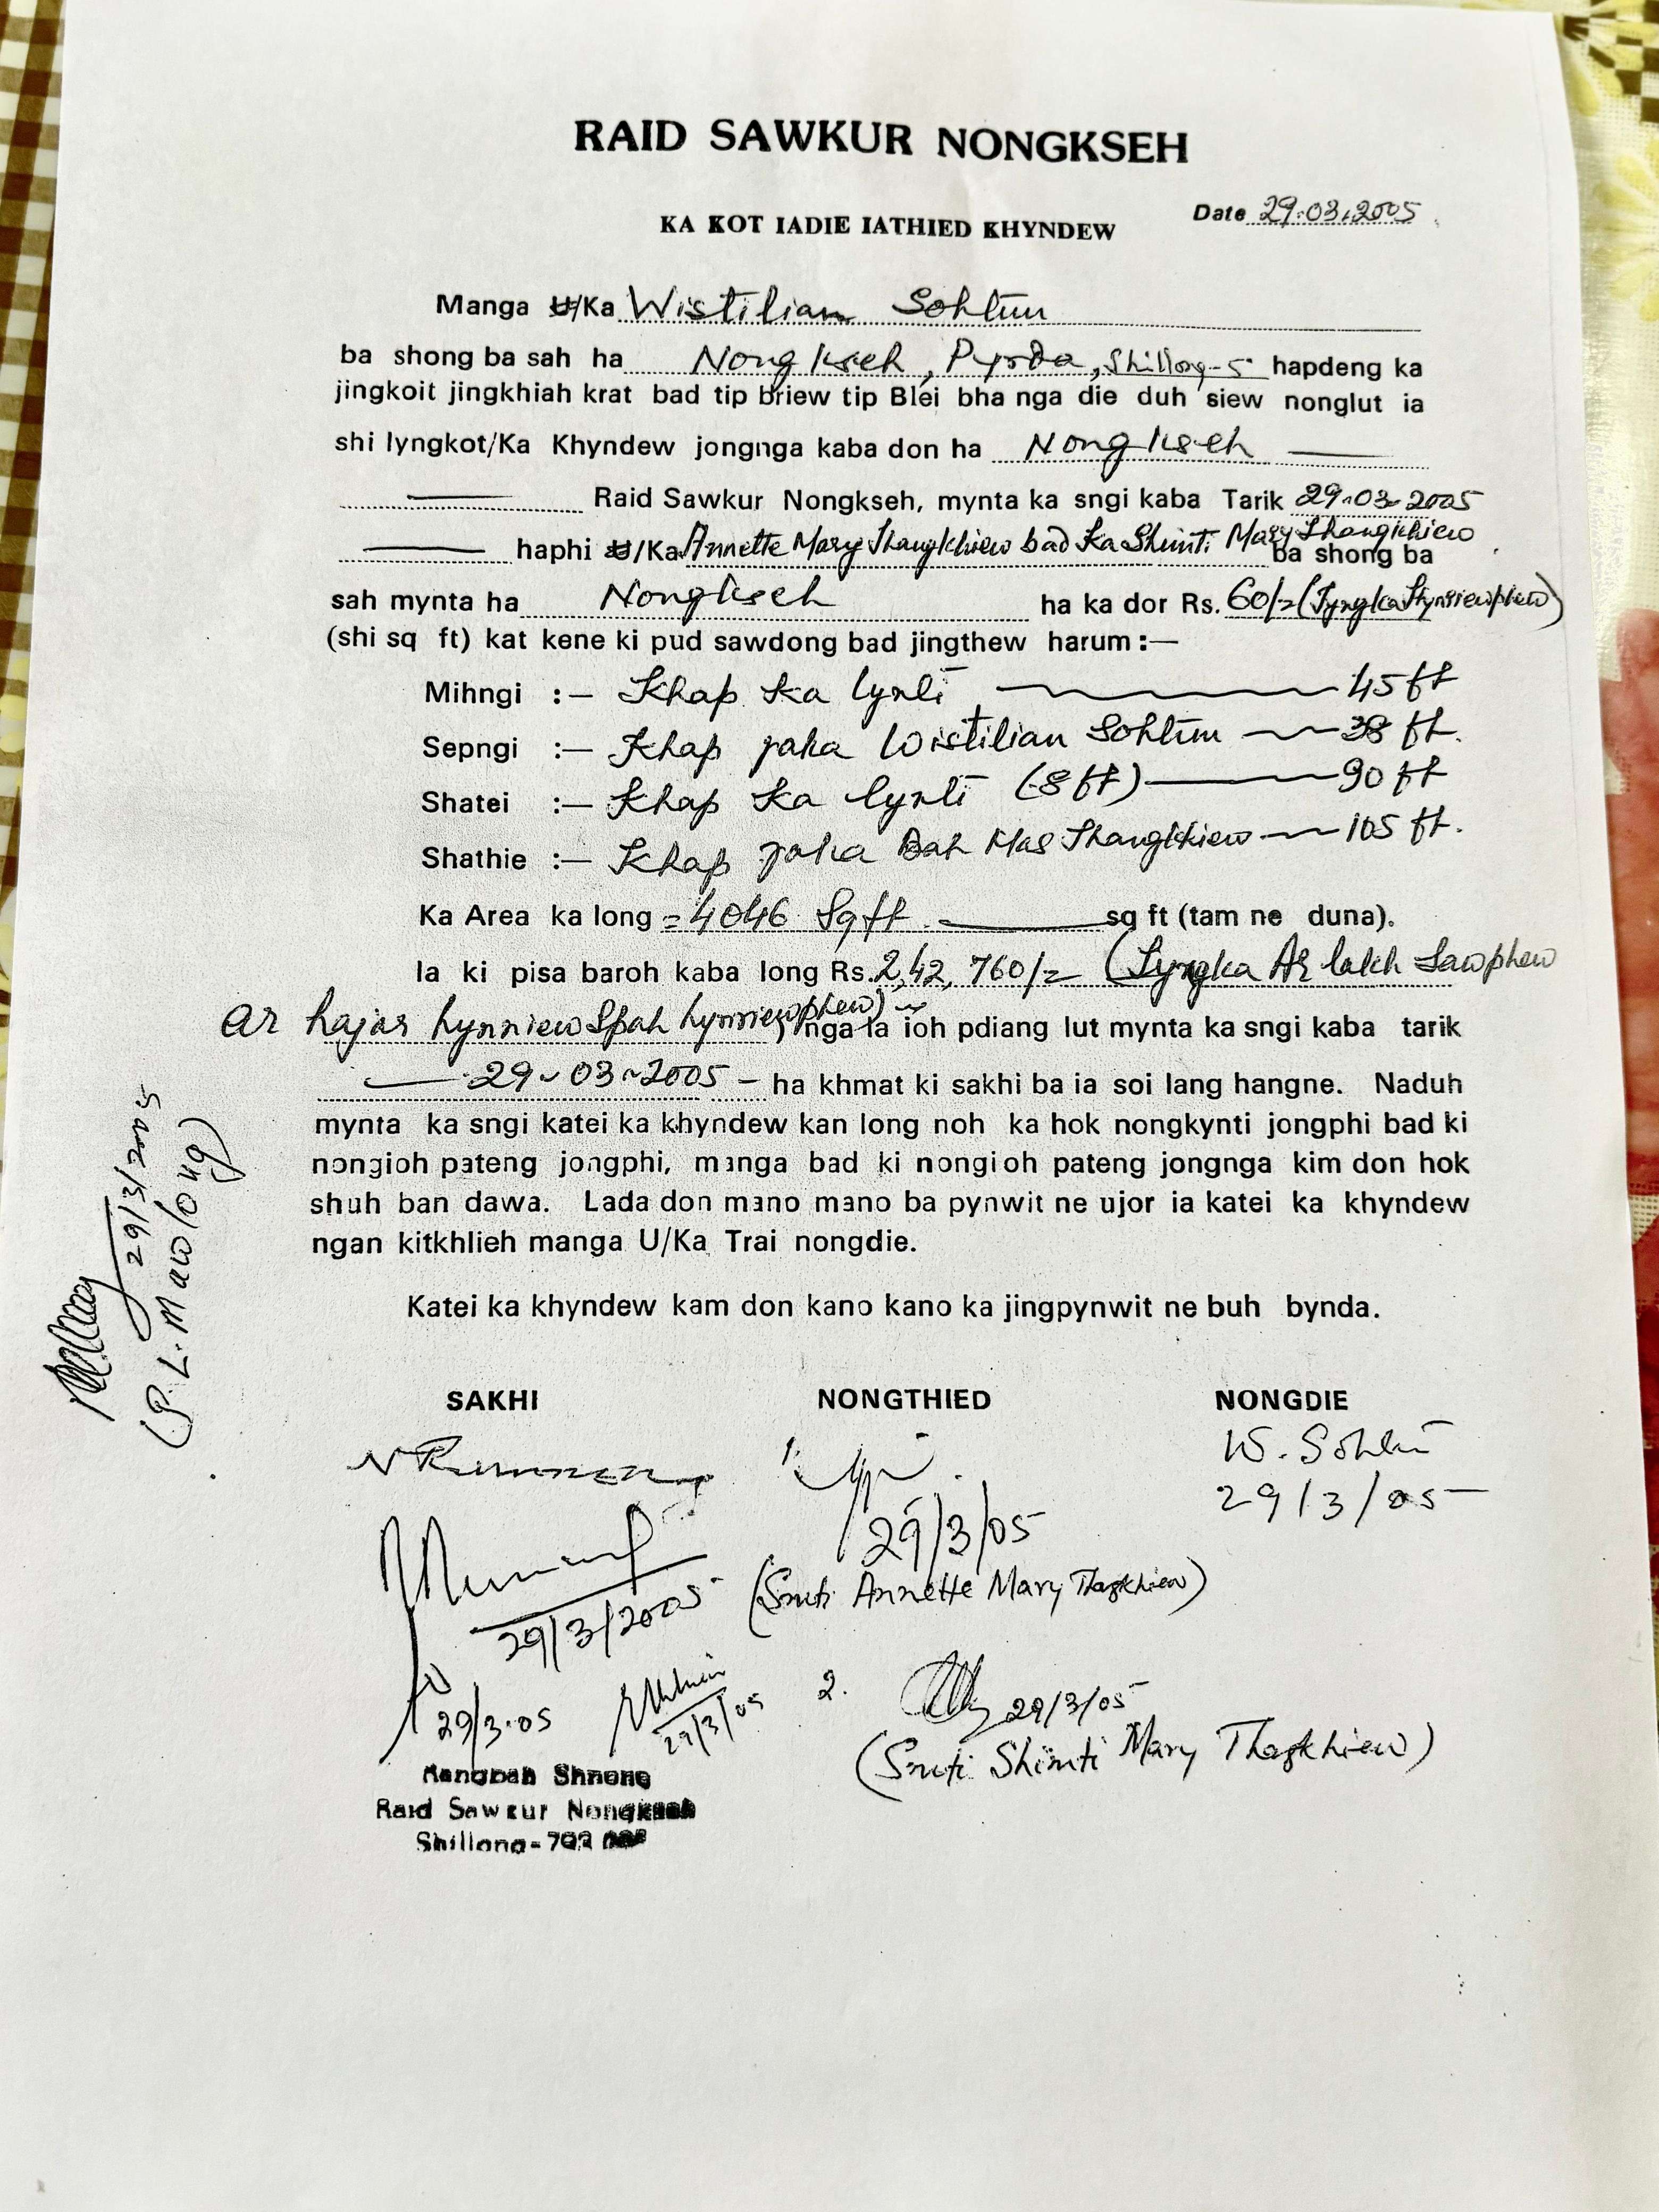 RAID SAWKUR NONGKSEH
Date 29.03.2005
KA KOT IADIE IATHIED KHYNDEW
Manga U/Ka Wistilian Sohtun
ba shong ba sah ha Nongkseh, Pyrda, Shillong-5 hapdeng ka
jingkoit jingkhiah krat bad tip briew tip Blei bha nga die duh siew nonglut ia
shi lyngkot/Ka Khyndew jongnga kaba don ha Nongkseh
Raid Sawkur Nongkseh, mynta ka sngi kaba Tarik 29-03-2005
haphi U/Ka Annette Mary Thangkhiew bad Ka Shimti Mary Thangkhiew ba shong ba
sah mynta ha Nongkseh ha ka dor Rs. 60/= (Tyngka Hynriewphew)
(shi sq ft) kat kene ki pud sawdong bad jingthew harum :—
Mihngi :— Khap ka lynti — 45 ft
Sepngi :— Khap jaka Wistilian Sohtun — 38 ft.
Shatei :— Khap ka lynti (8 ft) — 90 ft
Shathie :— Khap jaka Bah Mas Thangkhiew — 105 ft.
Ka Area ka long = 4046 Sq ft. sq ft (tam ne duna).
Ia ki pisa baroh kaba long Rs. 2,42,760/= (Tyngka Ar lakh Sawphew
ar hajar hynniew Spah hynriewphew) nga la ioh pdiang lut mynta ka sngi kaba tarik
29-03-2005 – ha khmat ki sakhi ba ia soi lang hangne. Naduh
mynta ka sngi katei ka khyndew kan long noh ka hok nongkynti jongphi bad ki
nongioh pateng jongphi, manga bad ki nongioh pateng jongnga kim don hok
shuh ban dawa. Lada don mano mano ba pynwit ne ujor ia katei ka khyndew
ngan kitkhlieh manga U/Ka Trai nongdie.
Katei ka khyndew kam don kano kano ka jingpynwit ne buh bynda.
29/3/2005
(P. L. Mawlong)
SAKHI NONGTHIED NONGDIE
1. W. Sohtun
29/3/05 29/3/05
(Smti Annette Mary Thangkhiew)
29/3/2005
29/3.05 29/3/05 2. 29/3/05
(Smti Shimti Mary Thangkhiew)
Rangbah Shnong
Raid Sawkur Nongkseh
Shillong-793